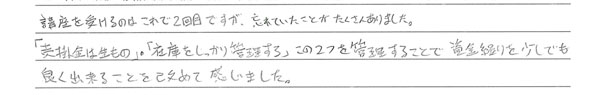 講座を受けるのはこれで2回目ですが、忘れていたことがたくさんありました。
「売掛金は生もの」。「在庫をしっかり管理する」この2つを管理することで資金繰りを少しでも
良く出来ることを改めて感じました。